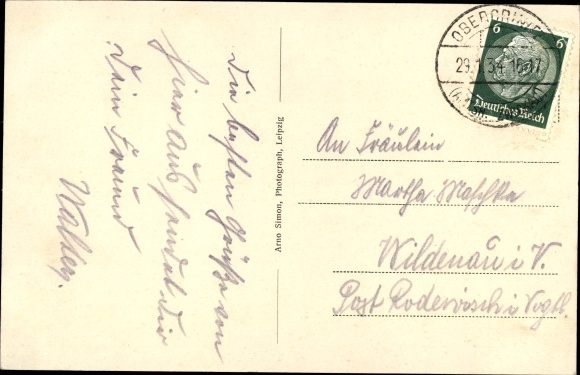 Die besten Grüße von
hier aus sendet Dir
Dein Freund
Walter.
Arno Simon, Photograph, Leipzig
29. 34
6 6
Deutsches Reich
An Fräulein
Martha Maschke
Wildenau i V.
Post Rodewisch i Vogtl.